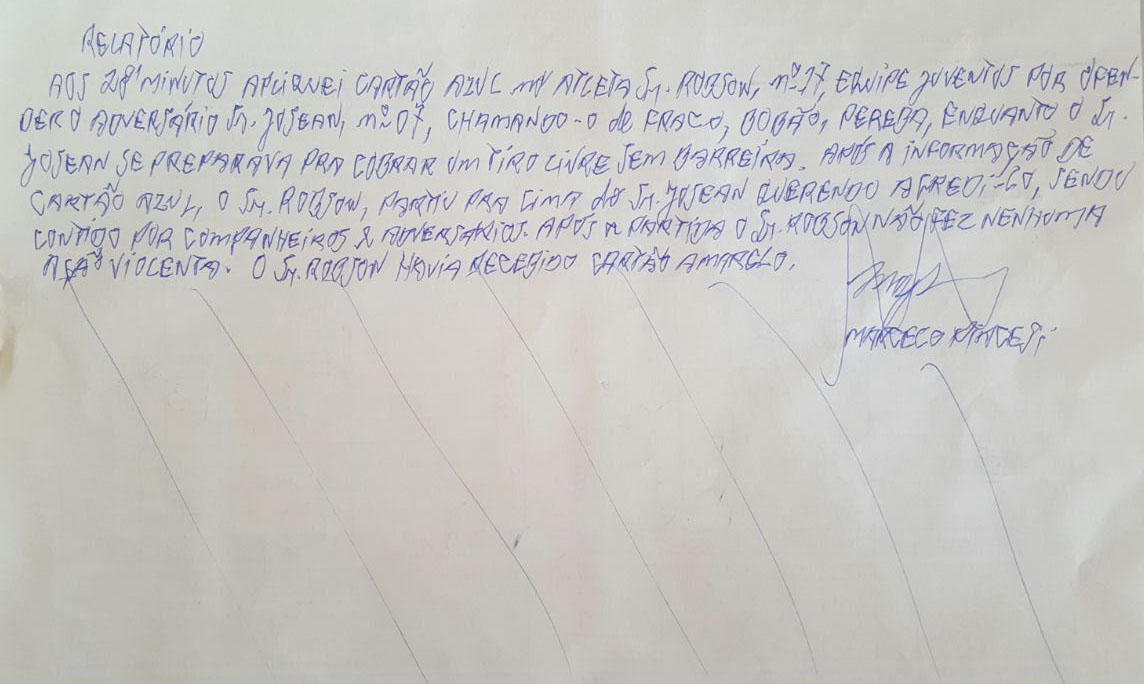 RELATÓRIO
AOS 28' MINUTOS APLIQUEI CARTÃO AZUL AO ATLETA Sr. ROBSON, nº 17, EQUIPE JUVENTUS POR OFEN-
DER O ADVERSÁRIO Sr. JOSEAN, nº 07, CHAMANDO-O de FRACO, BOBÃO, PEREBA, ENQUANTO O Sr.
JOSEAN SE PREPARAVA PRA COBRAR UM TIRO LIVRE SEM BARREIRA. APÓS A INFORMAÇÃO DE
CARTÃO AZUL, O Sr. ROBSON, PARTIU PRA CIMA do Sr. JOSEAN QUERENDO AGREDI-LO, SENDO
CONTIDO POR COMPANHEIROS & ADVERSÁRIOS. APÓS A PARTIDA O Sr. ROBSON NÃO FEZ NENHUMA
AÇÃO VIOLENTA. O Sr. ROBSON HAVIA RECEBIDO CARTÃO AMARELO.
MARCELO